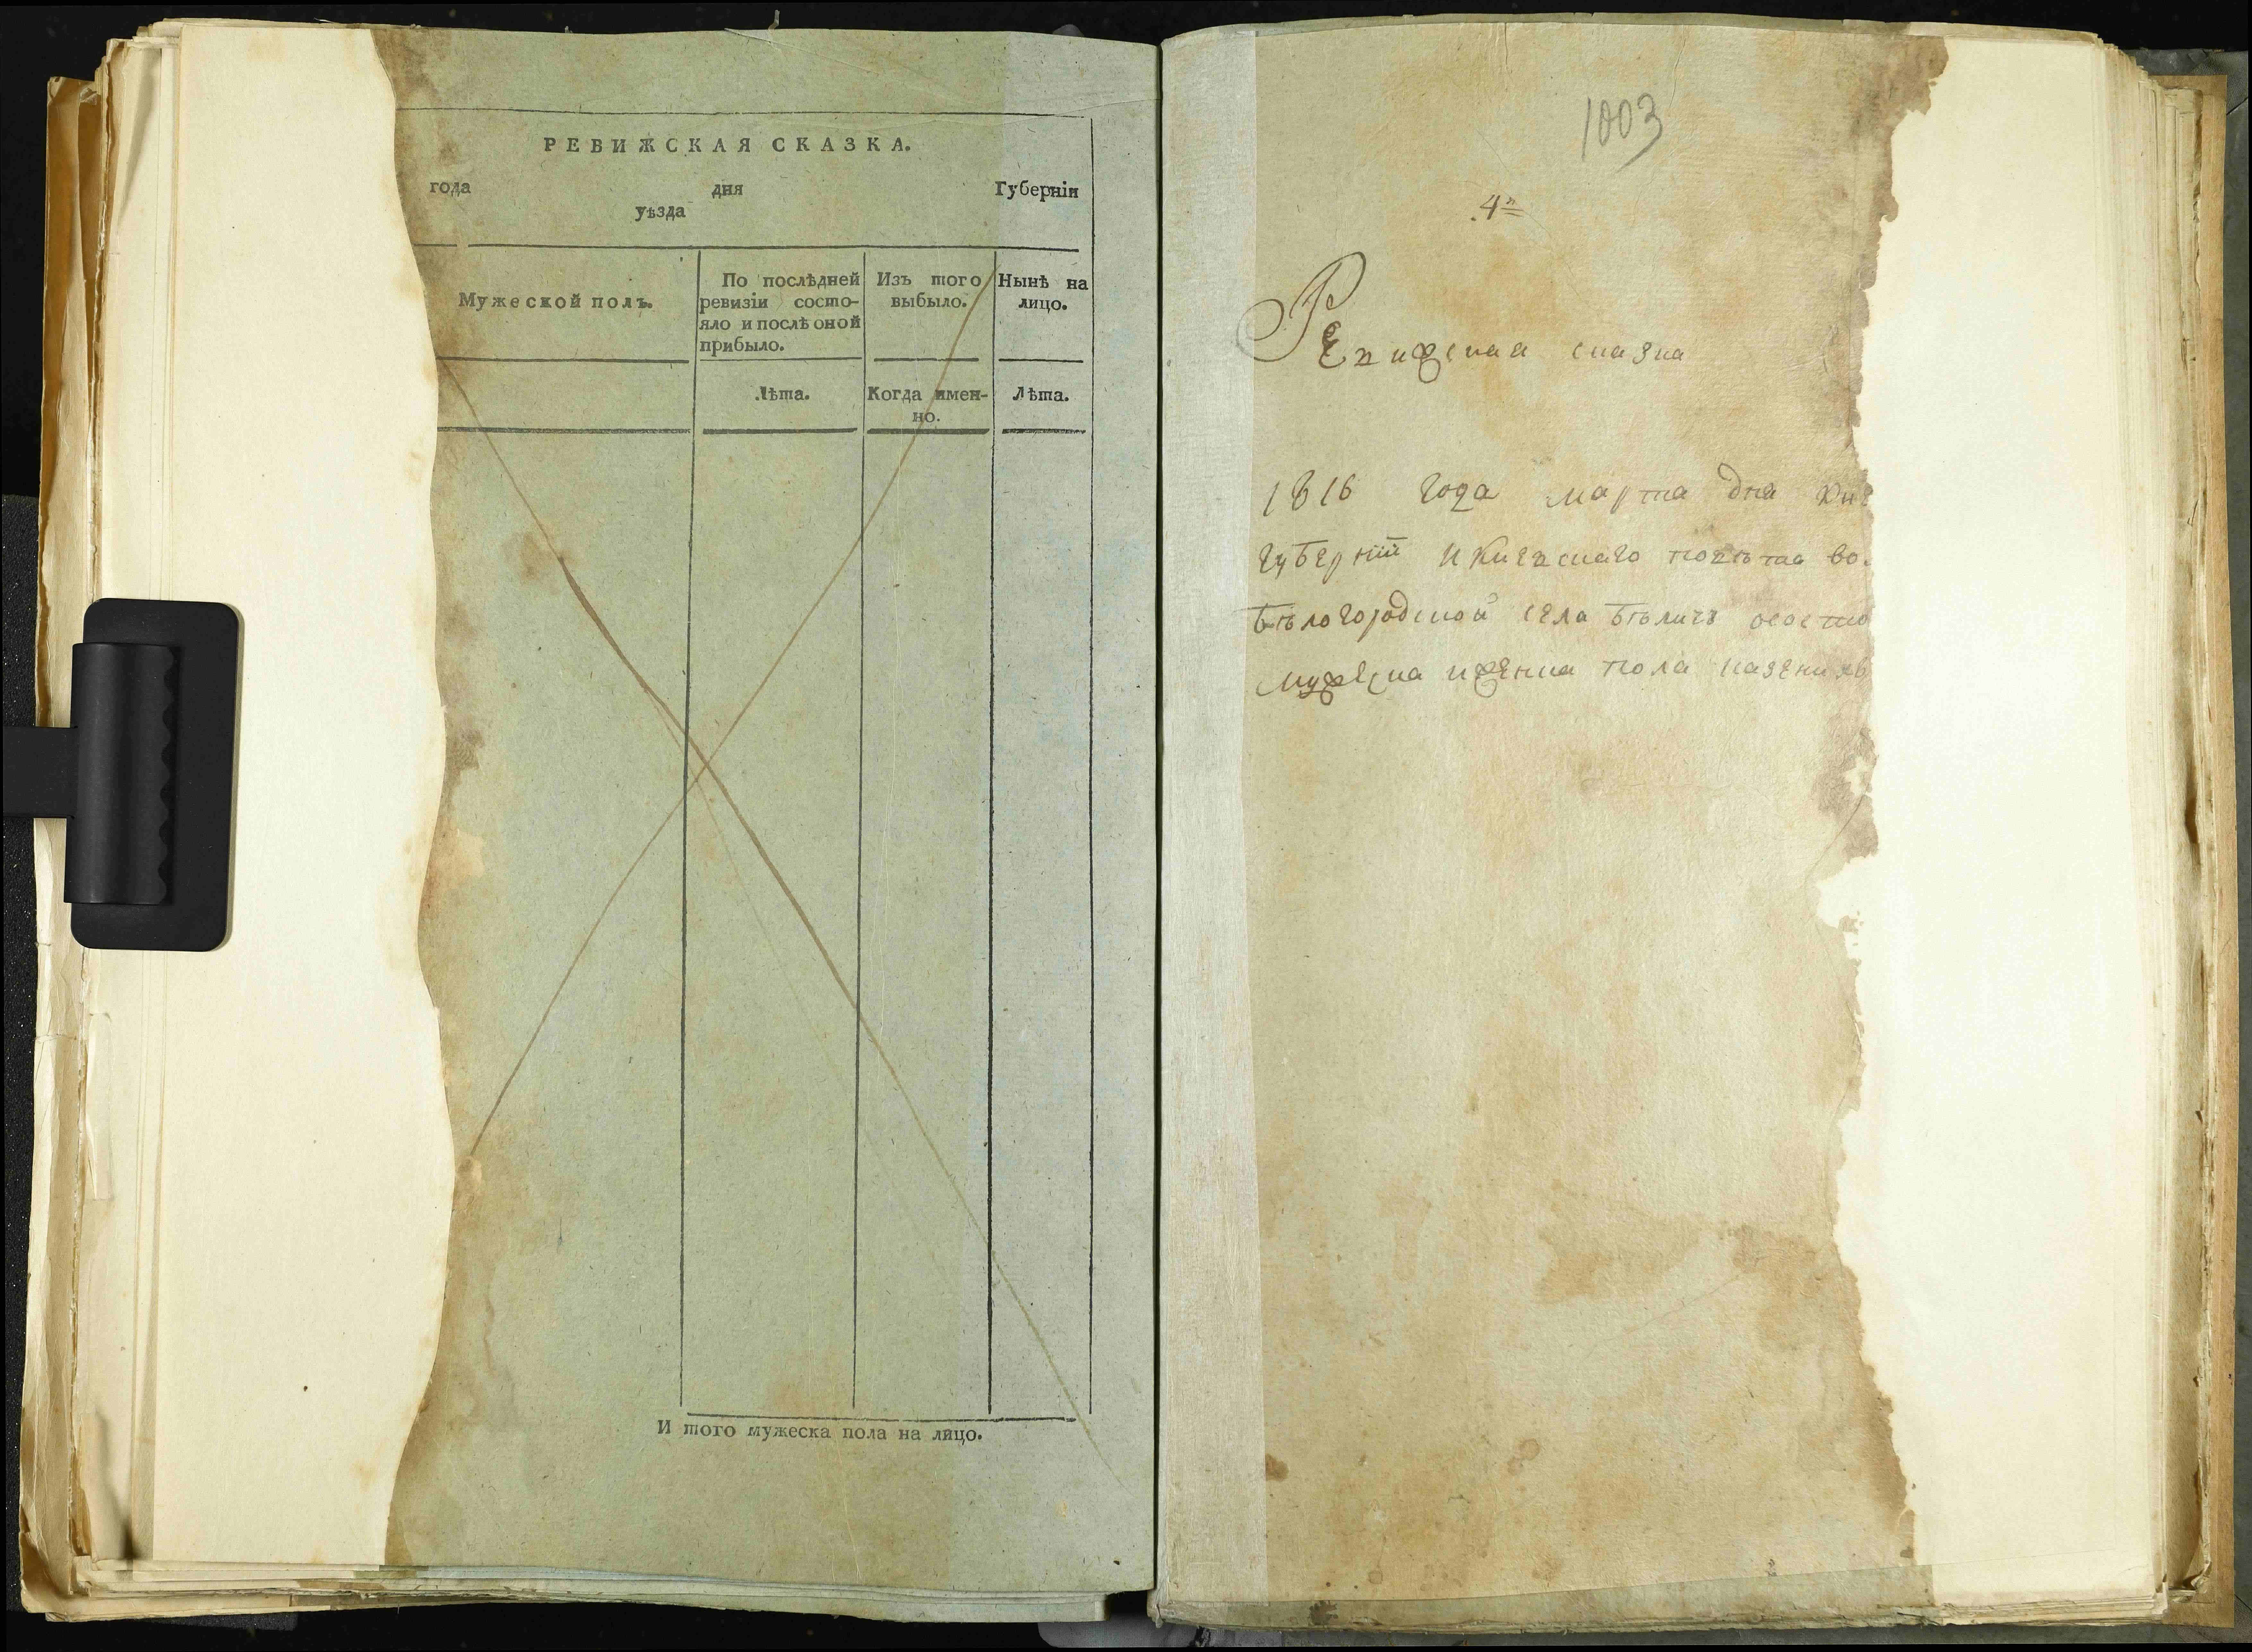 РЕВИЖСКАЯ СКАЗКА.
года дня Губерніи
уѣзда
Мужеской полъ.
По послѣдней ревизіи состо-
яло и послѣ оной
прибыло.
Изъ того
выбыло.
Нынѣ на
лицо.
Лѣта.
Когда имен-
но.
Лѣта.
И того мужеска пола на лицо.
1003
4я
Ревижская сказка
1816 года марта дня Кие
губернїи и Киевскаго повѣта во
Бѣлогородской села Бѣличъ
мужеска и женска пола казених